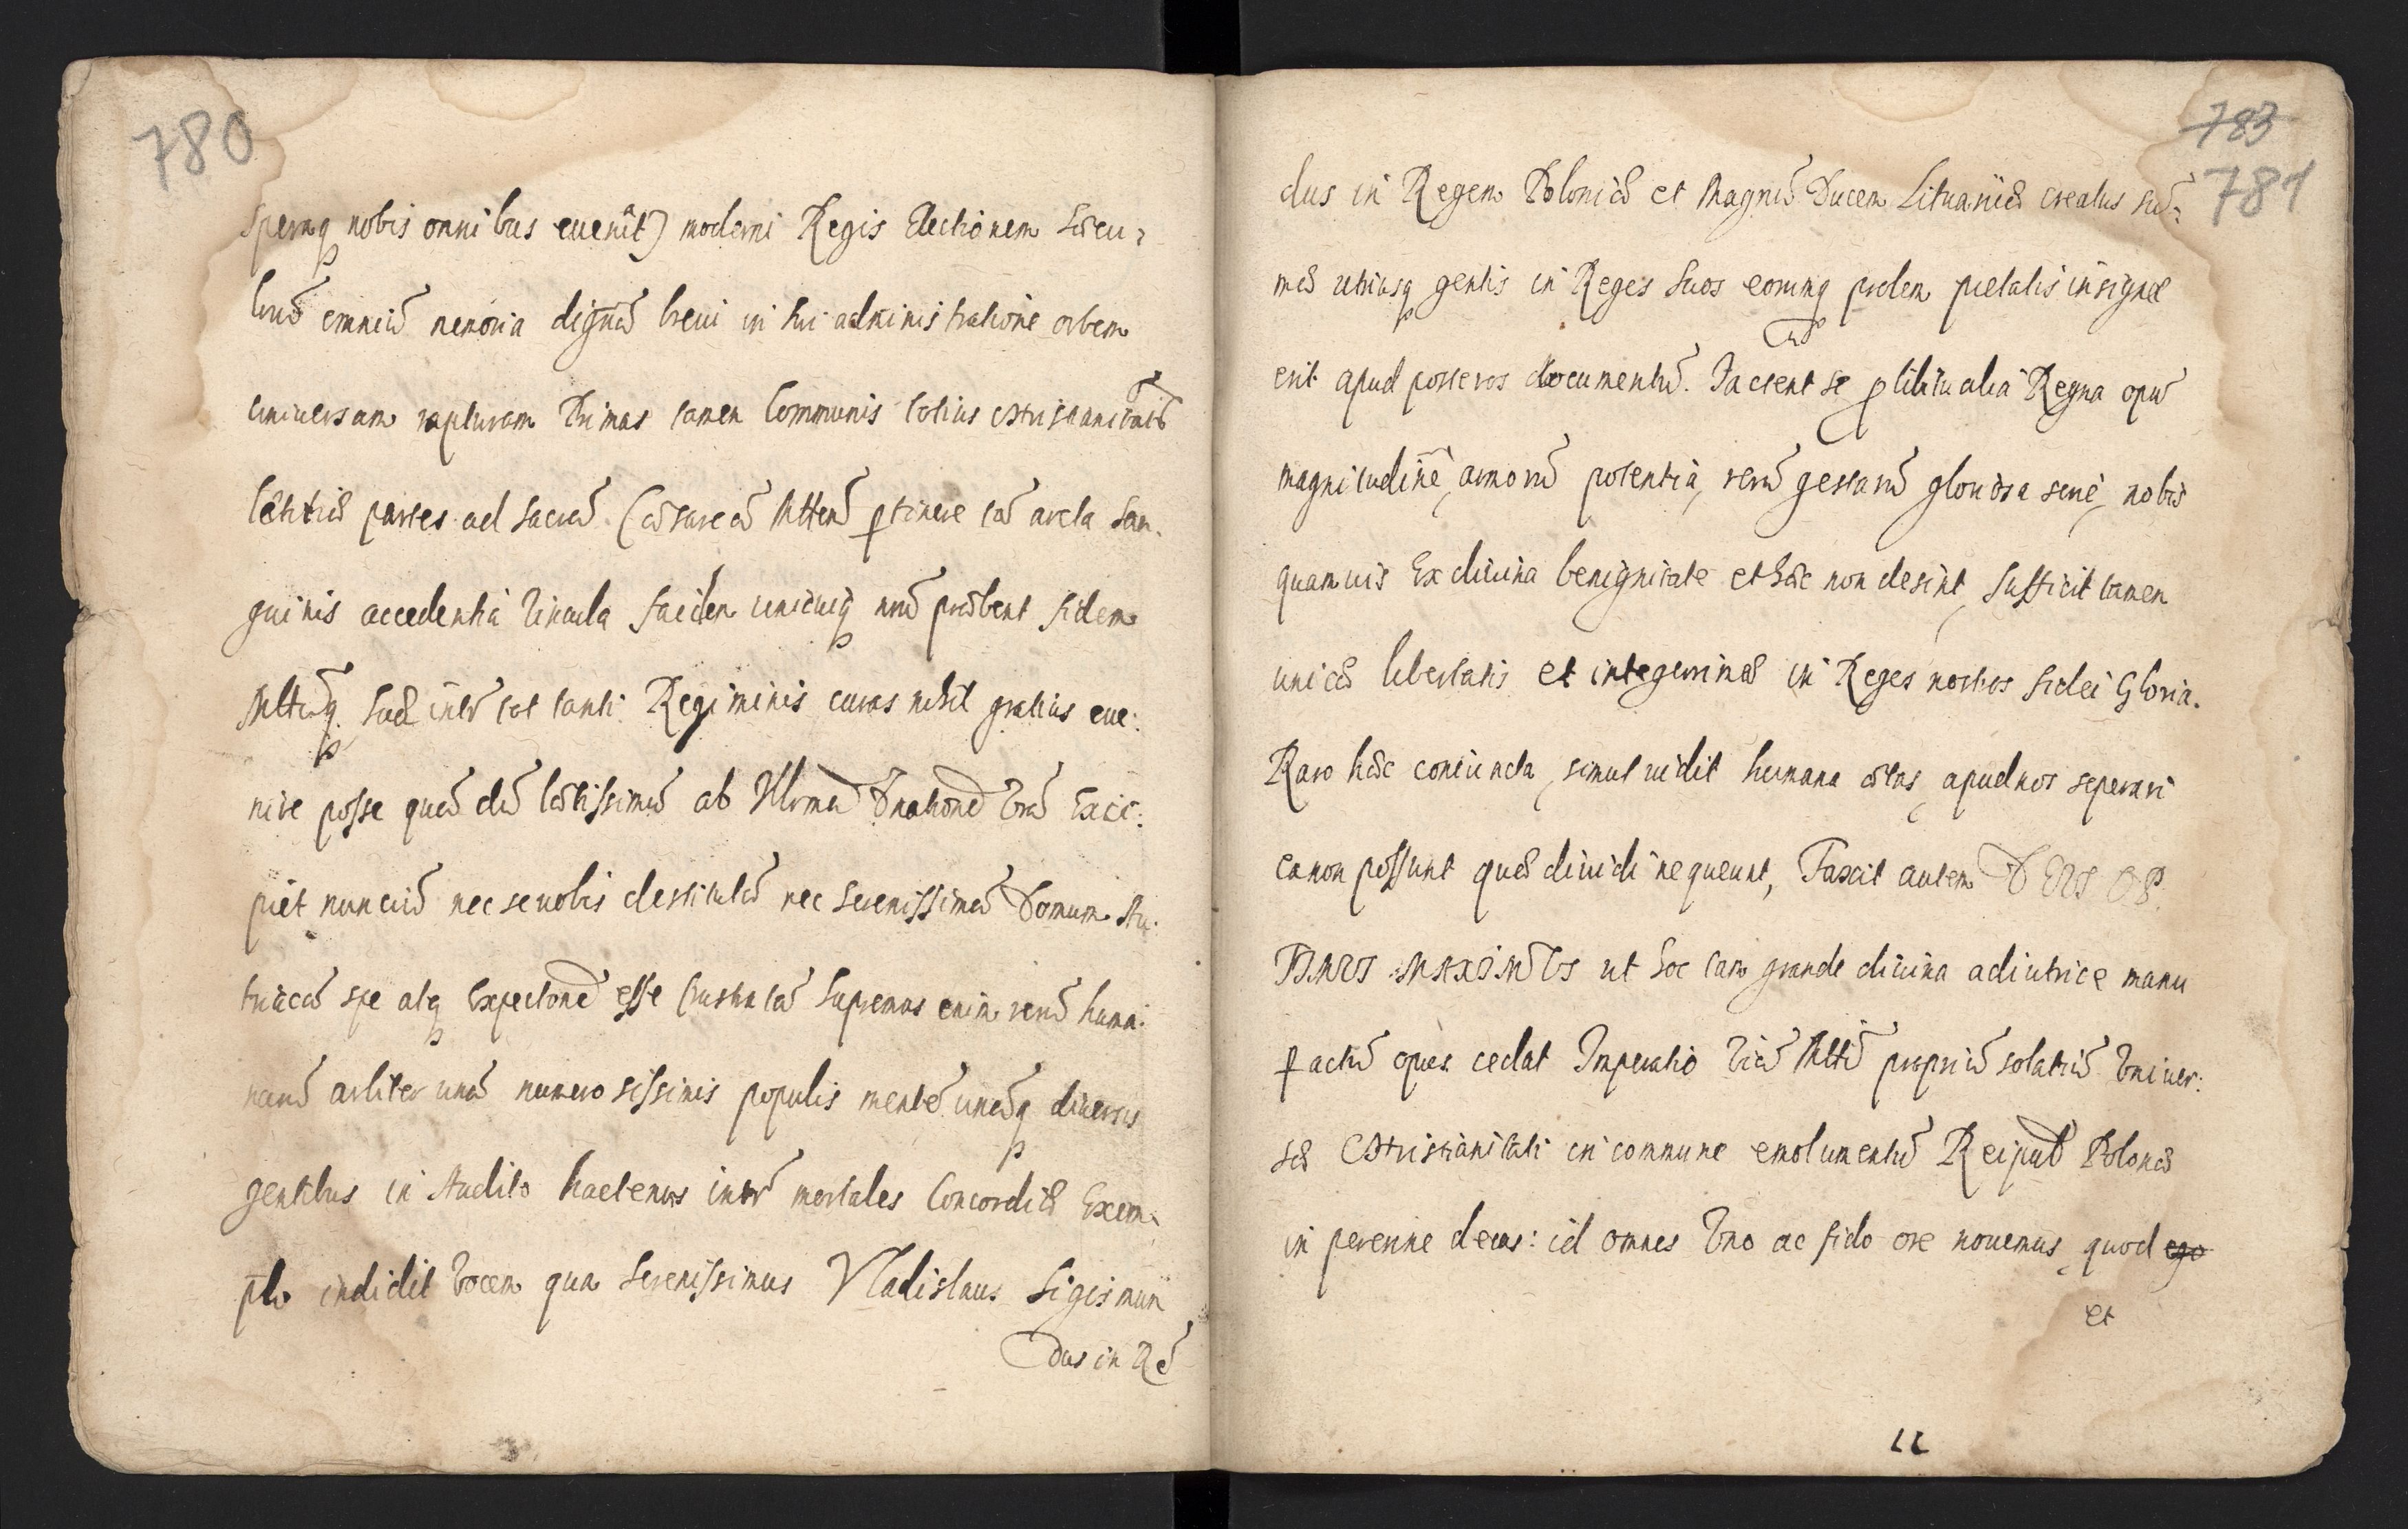 780
speraq nobis omnibus euenit) moderni Regis Electionem Saecu-
lorũ omniũ memoria dignã breui in sui administratione orbem
uniuersam rapturam Primas tamen Communis totius Christianitatis
laetitiae partes ad Sacrã Caesareã Mttem ptinere tã arcta San-
guinis accedentia Vincula facilem unicuiq nrũ praebent fidem
Mttiq Suae intr tot tanti Regiminis curas nihil gratius eue-
nire posse quã dũ laetissimũ ab Illrma Dnatione Vrã Exci-
piet nunciũ nec se uotis destitutã nec Serenissimã Domum Au-
triacã spe atq Expectone esse frustratã Supremus enim rerũ huma-
narũ arbiter unã numerosissimis populis mentẽ unãq diuersis
gentibus in Audito hactenus intr mortales Concordiae Exem-
plo indidit Vocem qua Serenissimus Vladislaus Sigismun
dus in Rẽ
783
781
dus in Regem Poloniae et Magnũ Ducem Lituaniae creatus sũ-
mae utriusq gentis in Reges Suos eorumq prolem pietatis insigne
erit apud posteros documentũ. Jactent se p libitu alia Regna opũ
magnitudine, armorũ potentia, rerũ gestarũ gloriosa serie, nobis
quamuis Ex diuina benignitate et haec non desint, Sufficit tamen
unicae libertatis et integerrimae in Reges nostros fidei Gloria.
Raro haec coniuncta, simul uidit humana aetas, apud nos seperari
ea non possunt quae diuidi nequeunt, Faxit autem DEUS OP
TIMUS MAXIMUS ut hoc tam grande diuina adiutrice manu
pactũ opus cedat Imperatio Vrae Mtti propriũ solatiũ Vniuer-
sae Christianitati in commune emolumentũ Reipub Polonae
in perenne decus: id omnes Vno ac fido ore nouemus, quod ego
et